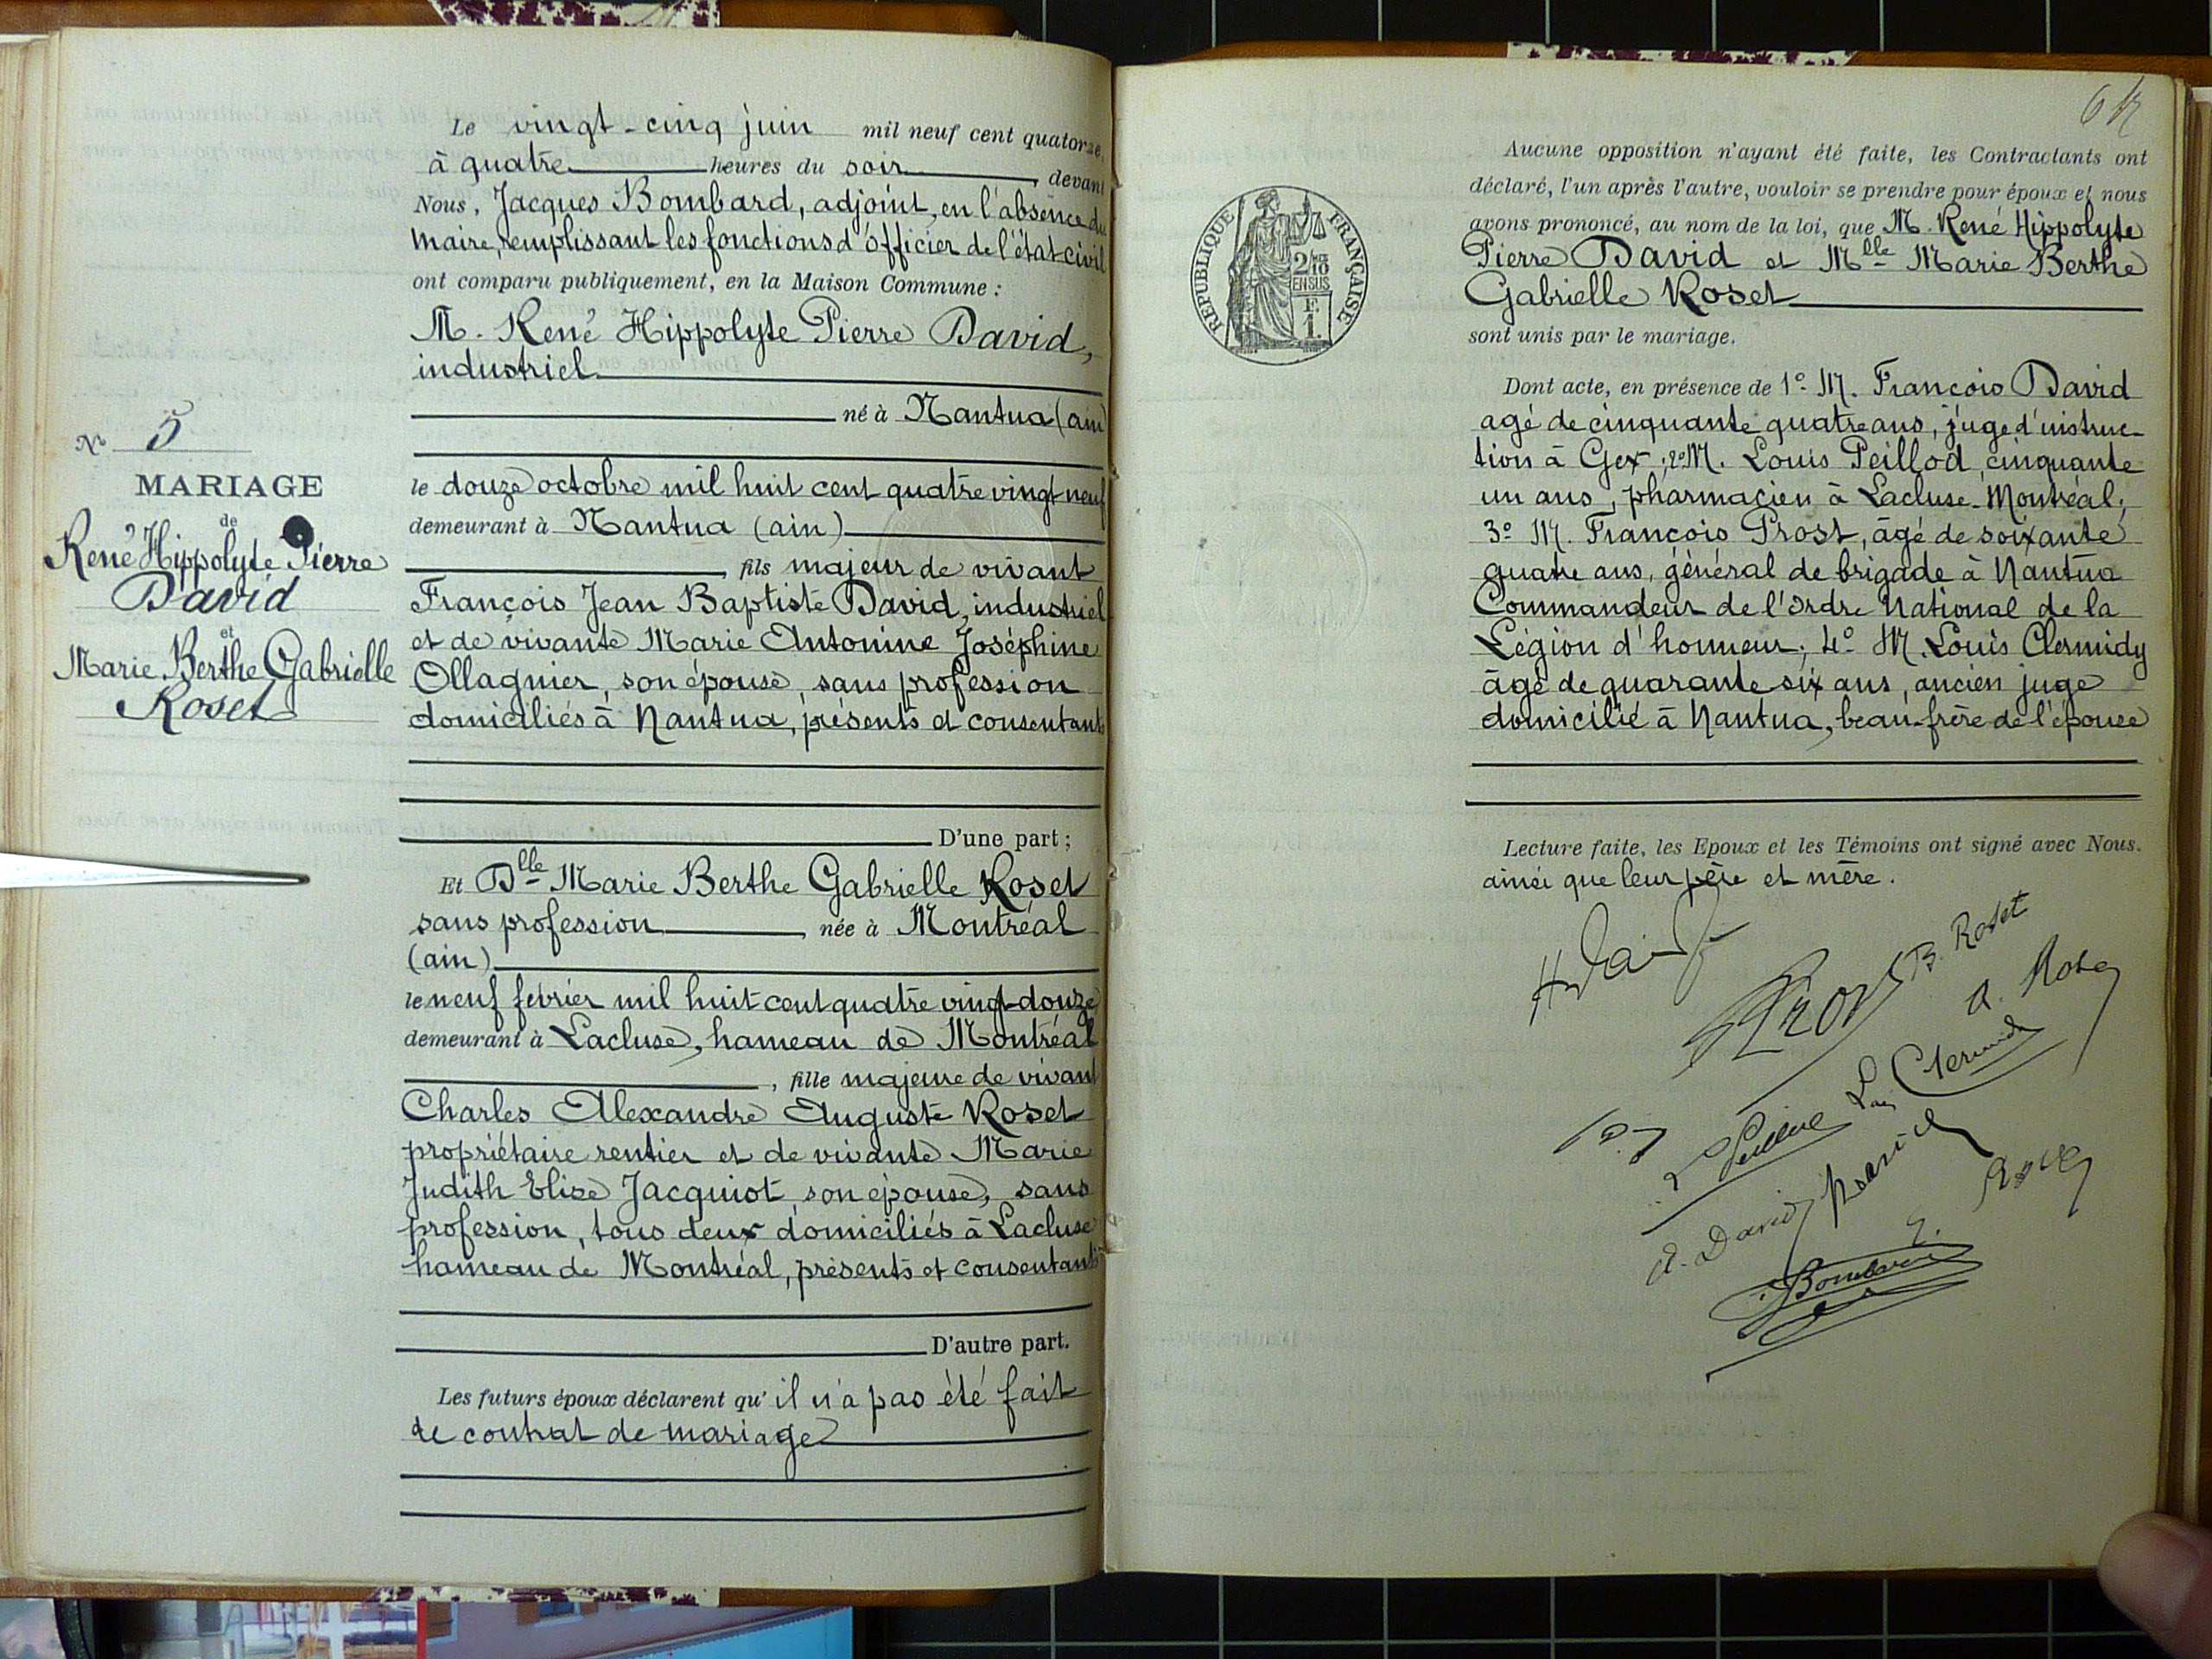 Le vingt-cinq juin mil neuf cent quatorze,
à quatre heures du soir, devant
Nous, Jacques Bombard, adjoint, en l'absence du
Maire, remplissant les fonctions d'officier de l'état-civil
ont comparu publiquement, en la Maison Commune :
M. René Hippolyte Pierre David,
industriel
né à Nantua (ain)
le douze octobre mil huit cent quatre vingt neuf
demeurant à Nantua (ain)
, fils majeur de vivant
François Jean Baptiste David, industriel
et de vivante Marie Antonine Joséphine
Ollagnier, son épouse, sans profession
domiciliés à Nantua, présents et consentants
D'une part ;
Et Dlle Marie Berthe Gabrielle Roset
sans profession, née à Montréal
(ain)
le neuf février mil huit cent quatre vingt-douze
demeurant à Lacluse, hameau de Montréal
, fille majeure de vivant
Charles Alexandre Auguste Roset
propriétaire rentier et de vivante Marie
Judith Elise Jacquiot, son épouse, sans
profession, tous deux domiciliés à Lacluse
hameau de Montréal, présents et consentants
D'autre part.
Les futurs époux déclarent qu'il n'a pas été fait
de contrat de mariage
No 5
MARIAGE
de
René Hippolyte Pierre
David
et
Marie Berthe Gabrielle
Roset
Aucune opposition n'ayant été faite, les Contractants ont
déclaré, l'un après l'autre, vouloir se prendre pour époux et nous
avons prononcé, au nom de la loi, que M. René Hippolyte
Pierre David et Mlle Marie Berthe
Gabrielle Roset
sont unis par le mariage.
Dont acte, en présence de 1o M. François David
agé de cinquante quatre ans, juge d'instruc-
tion à Gex ; 2o M. Louis Peillod, cinquante
un ans, pharmacien à Lacluse-Montréal ;
3o M. François Prost, âgé de soixante
quatre ans, général de brigade à Nantua
Commandeur de l'Ordre National de la
Légion d'honneur ; 4o M. Louis Clermidy
âgé de quarante six ans, ancien juge
domicilié à Nantua, beau-frère de l'épouse
Lecture faite, les Epoux et les Témoins ont signé avec Nous.
ainsi que leur père et mère.
B. Roset
A. Roset
Clermidy
A. David
Bombard
REPUBLIQUE FRANÇAISE
2/10
EN SUS